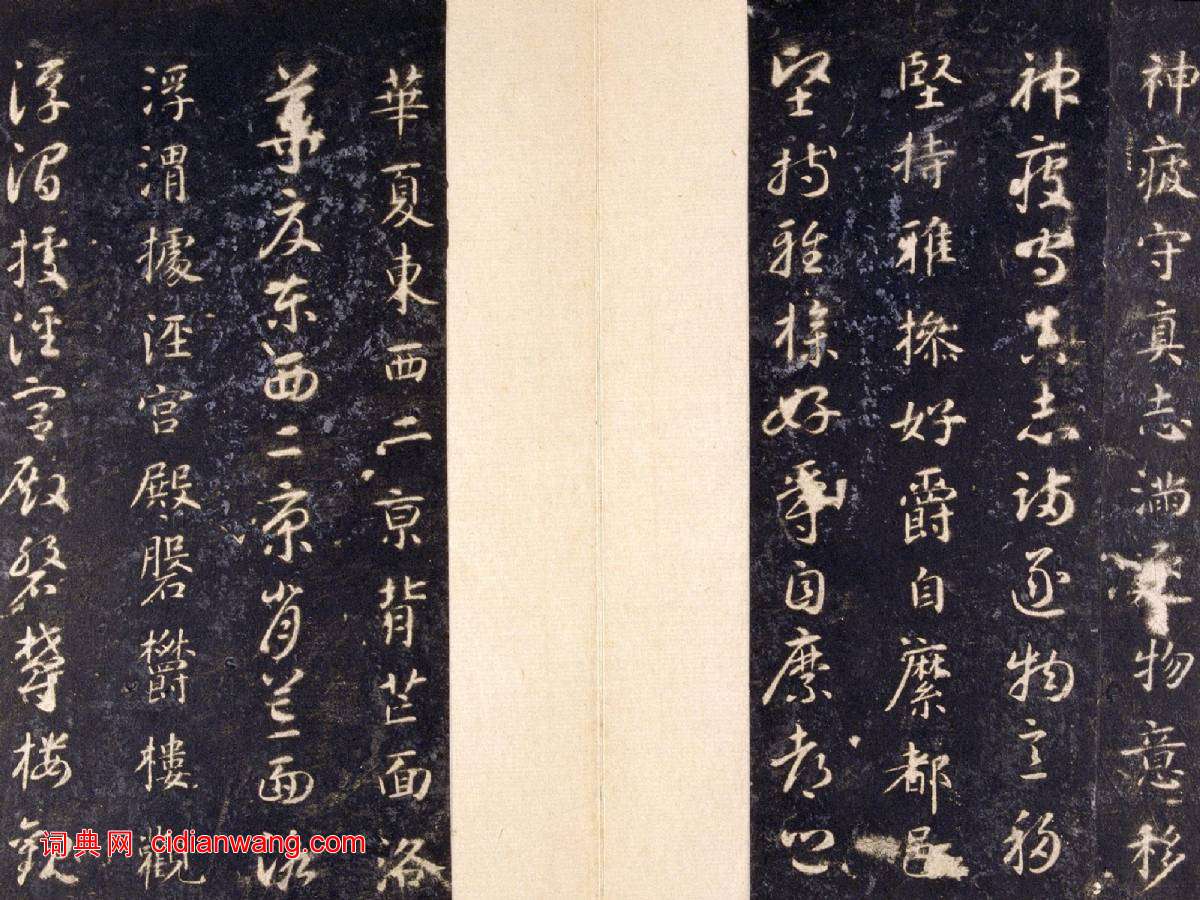 神疲守真志滿逐物意移
神疲守真志滿逐物意移
堅持雅操好爵自縻都邑
堅持雅操好爵自縻都邑
華夏東西二京背芒面洛
華夏東西二京背芒面洛
浮渭據涇宮殿磐欝樓觀
浮渭據涇宮殿磐欝樓觀
词典网 cidianwang.com